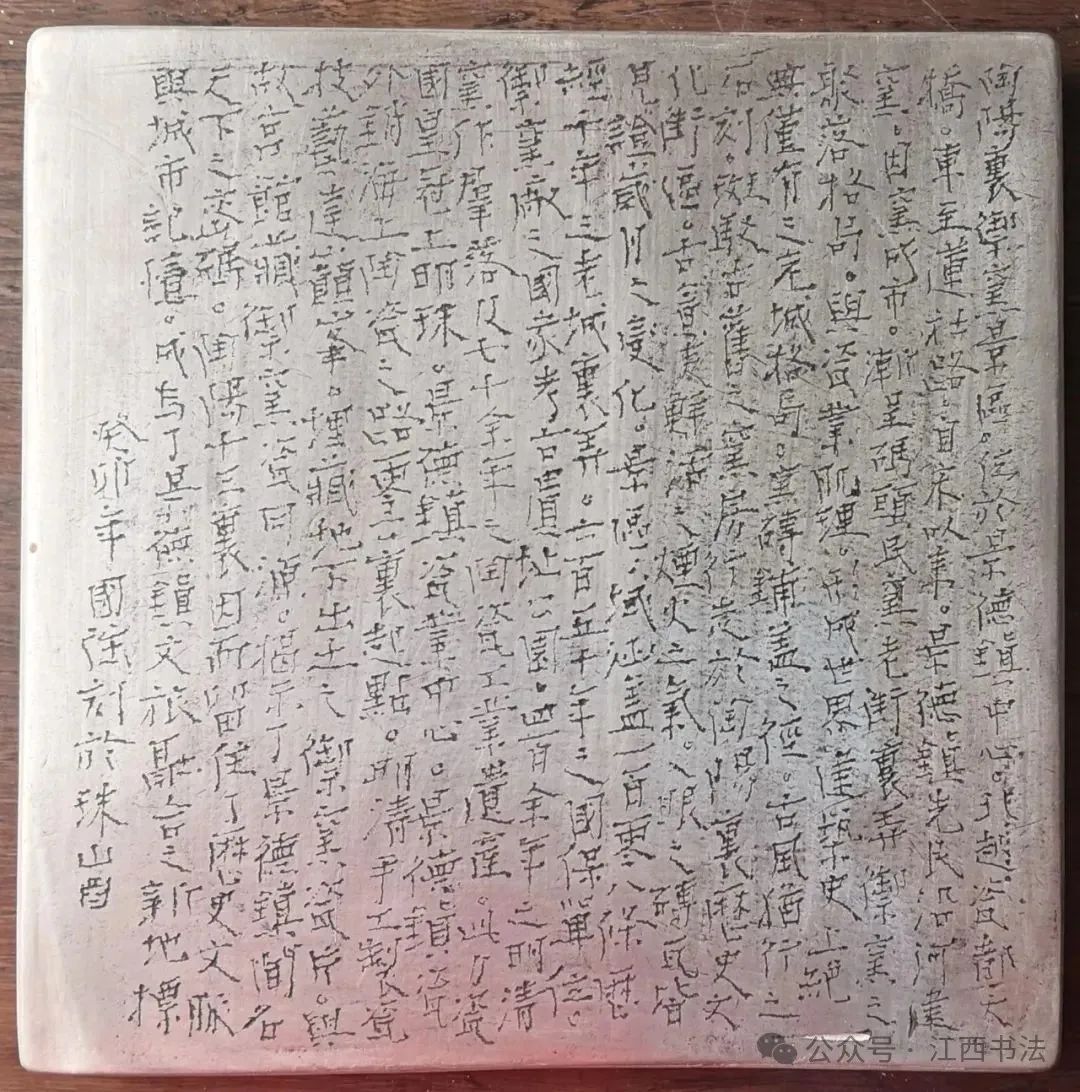 陶陽裏御窯景區。位於景德鎮中心。北起瓷都大
橋。東至蓮社路。自宋以來。景德鎮先民沿河建
窯。因窯成市。漸呈碼頭民窯老街裏弄御窯之
聚落格局。與瓷業肌理。形成世界建築史上絕
無僅有之老城格局。窯磚鋪蓋之徑。古風猶行之
石刻。古舊之窯房行走於陶陽裏歷史文
化街區。古意蘊鮮活之煙火之氣。入眼之磚瓦皆
見證歲月之變化。景區涵蓋一百零八條歷
經千年之老城裏弄。六百五十年之國保單位。
御窯廠之國家考古遺址公園。四百余年之明清
窯作群落及七十余年之陶瓷工業遺產。此乃瓷
國皇冠上明珠。景德鎮瓷業中心。景德鎮瓷
外銷海上陶瓷之路零裏起點。明清手工製瓷
技藝達巔峯。埋藏地下出土之御窯瓷片。與
故宮館藏御窯瓷同源。揭示了景德鎮聞名
天下之密碼。陶陽十三裏因而留住了歷史文脈
與城市記憶。成為了景德鎮文旅融合之新地標
癸卯年國強刻於珠山酉
公众号·江西书法